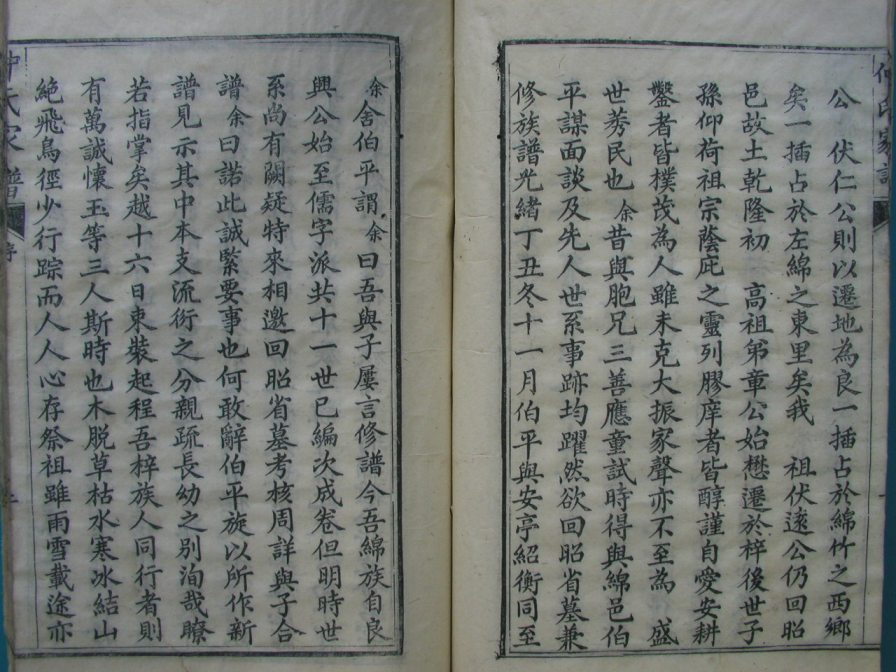 公　伏仁公則以遷地為良一插占於綿竹之西鄉
矣一插占於左綿之東里矣我　祖伏遠公仍回昭
邑故土乾隆初　高祖弟章公始懋遷於梓後世子
孫仰荷祖宗蔭庇之靈列膠庠者皆醇謹自愛安耕
鑿者皆樸茂為人雖未克大振家聲亦不至為　盛
世莠民也　余昔與胞兄三善應童試時得與綿邑伯
平謀面談及先人世系事跡均躍然欲回昭省墓兼
修族譜光緒丁丑冬十一月伯平與安亭紹衡同至
余舍伯平謂余曰吾與子屢言修譜今吾綿族自良
興公始至儒字派共十一世已編次成卷但明時世
系尚有闕疑特來相邀回昭省墓考核周詳與子合
譜余曰諾此誠緊要事也何敢辭伯平旋以所作新
譜見示其中本支流衍之分親疏長幼之別洵哉瞭
若指掌矣越十六日束裝起程吾梓族人同行者則
有萬誠懷玉等三人斯時也木脫草枯水寒冰結山
絕飛鳥徑少行踪而人人心存祭祖雖雨雪載途亦
氏家譜
序